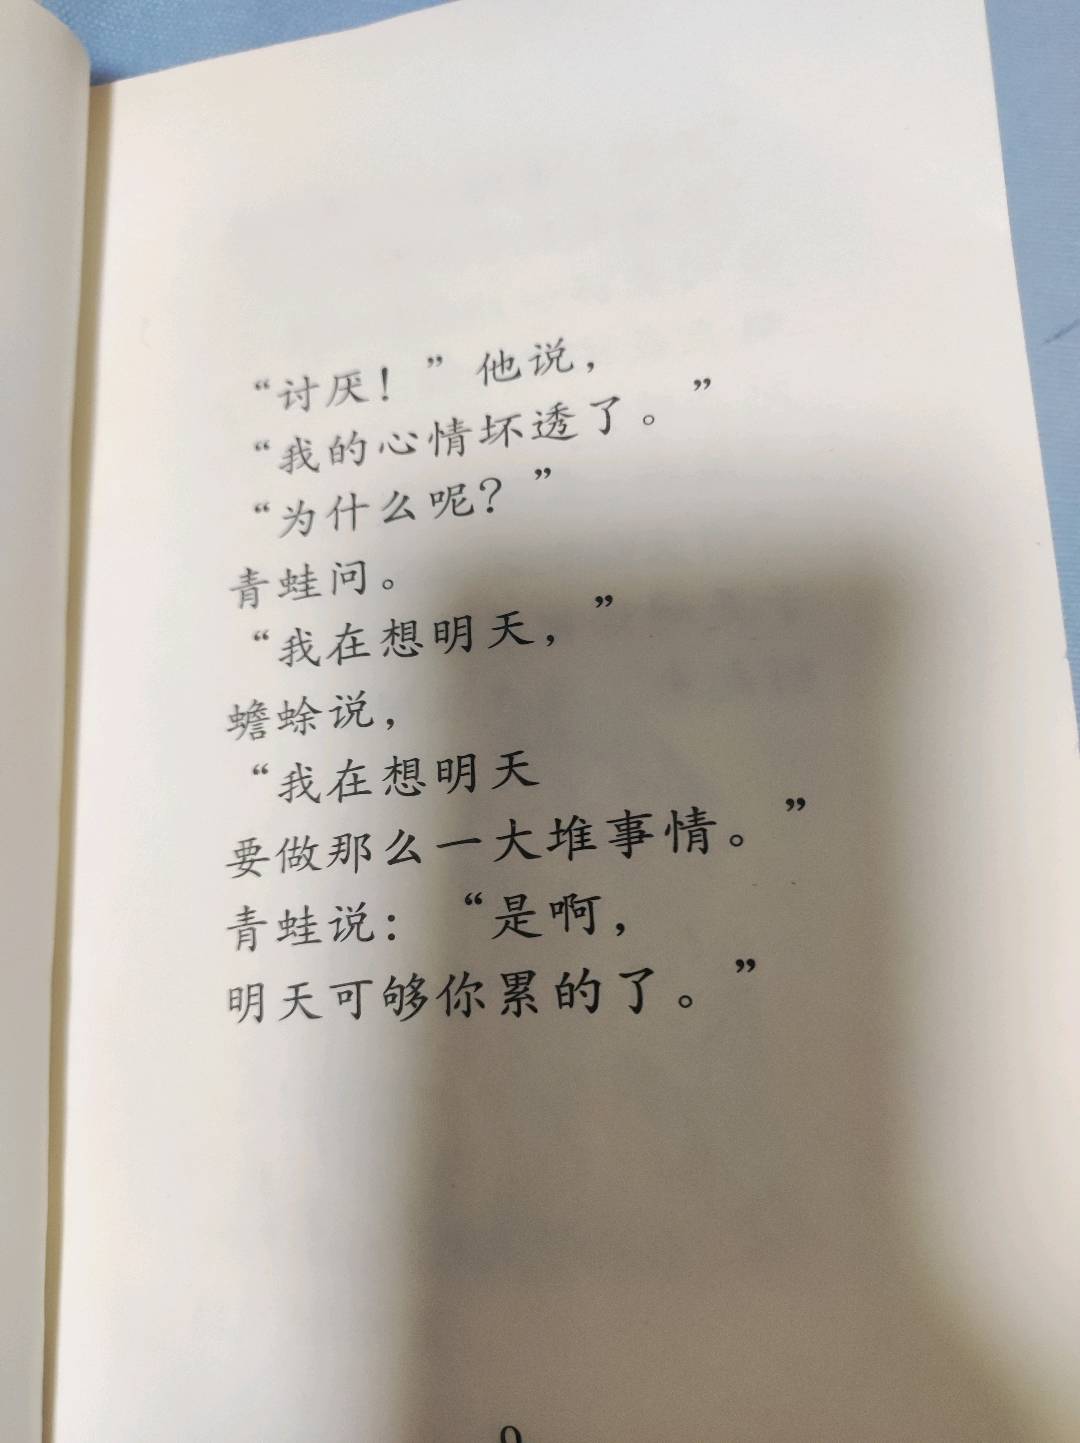 “讨厌！”他说，
“我的心情坏透了。”
“为什么呢？”
青蛙问。
“我在想明天，”
蟾蜍说，
“我在想明天
要做那么一大堆事情。”
青蛙说：“是啊，
明天可够你累的了。”
9